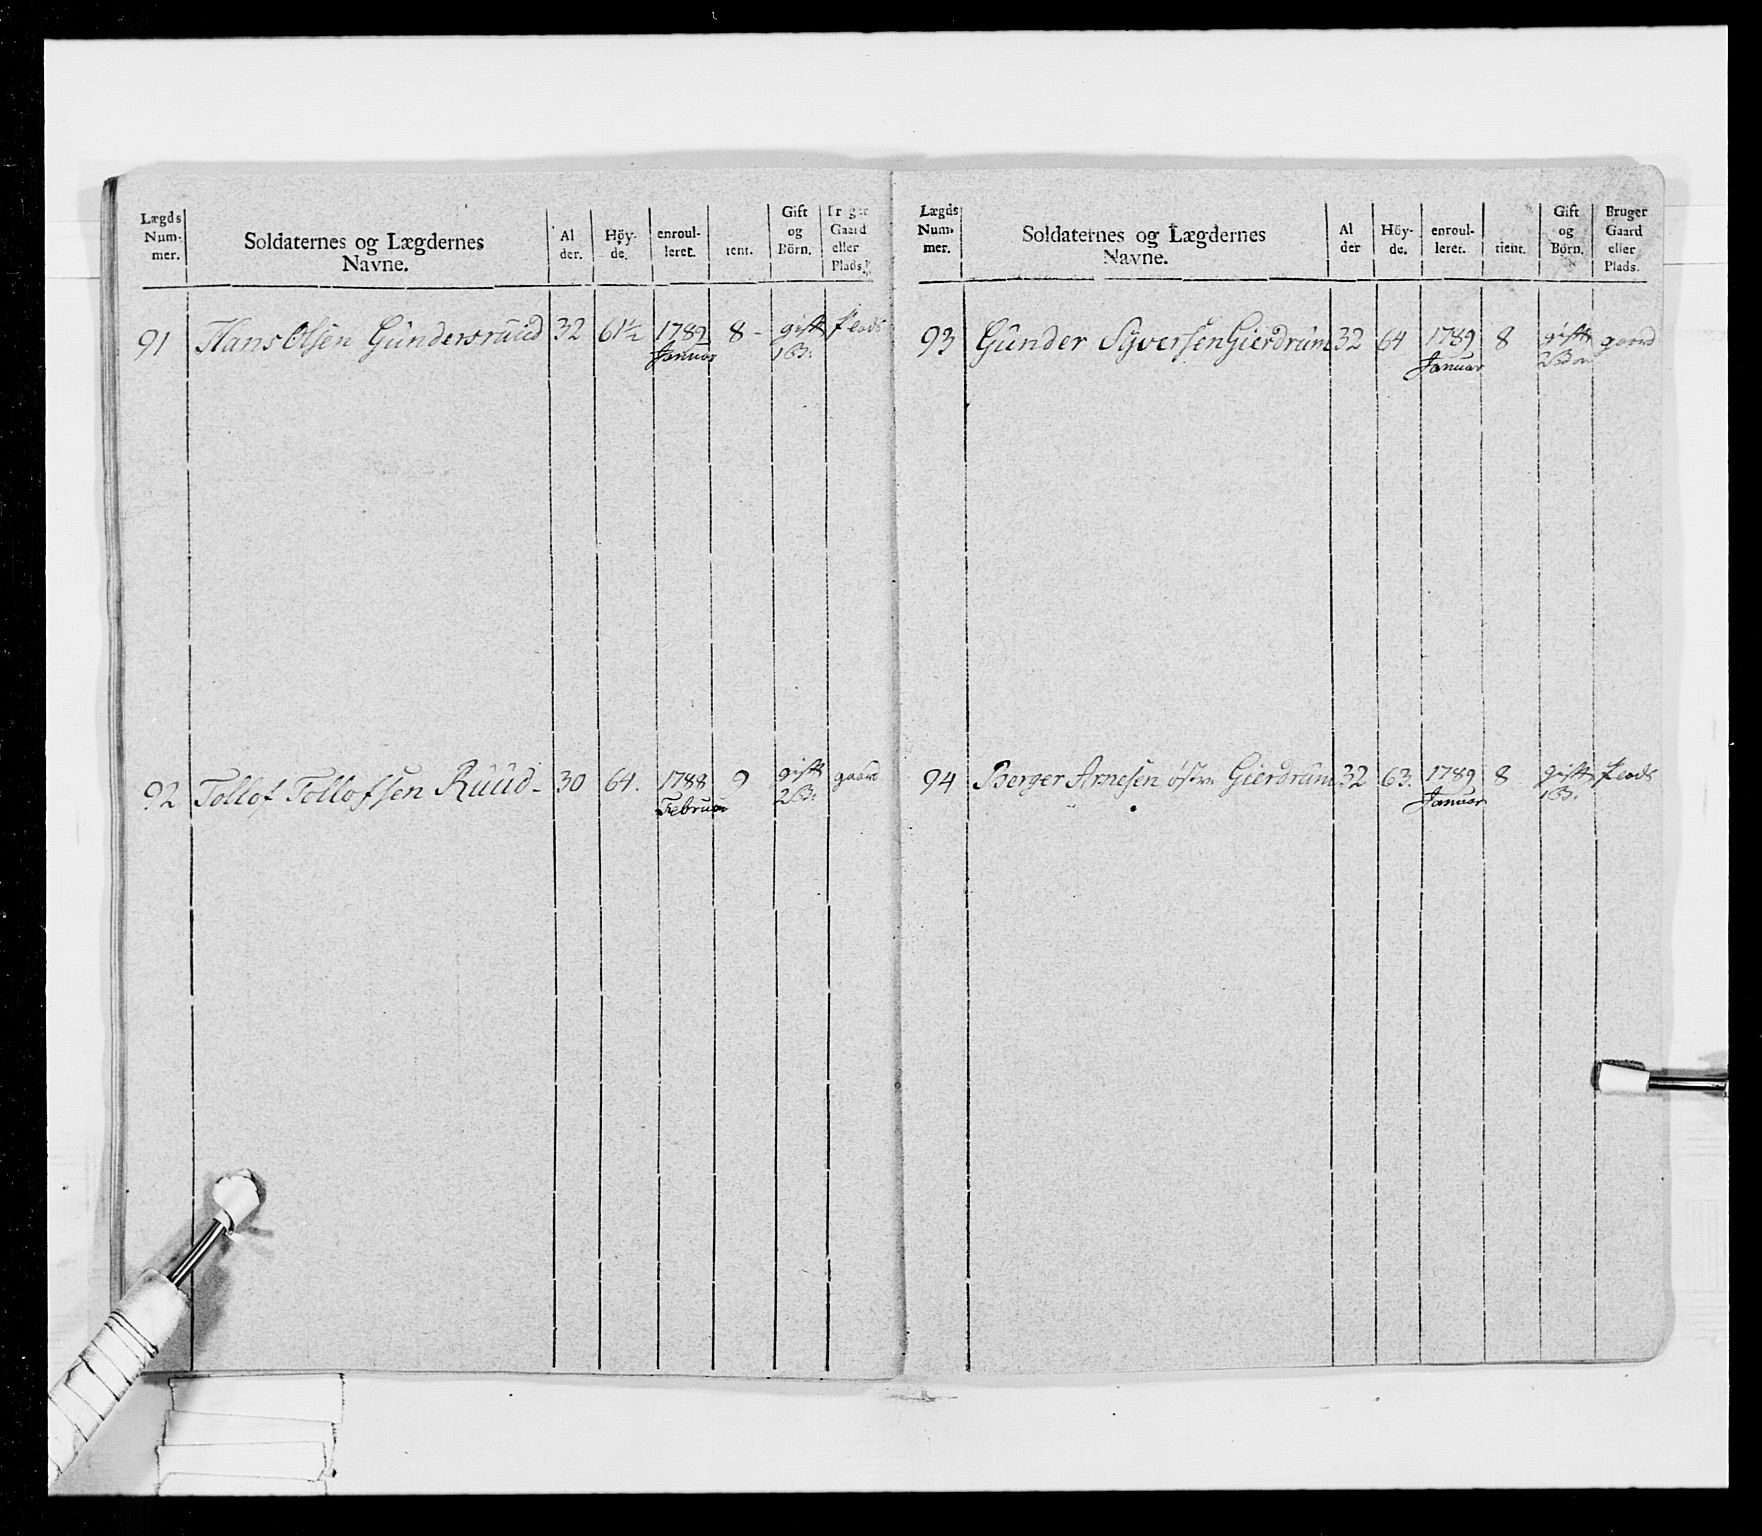 Lægds Num- mer.
Soldaternes og Lægdernes Navne.
Al der.
Höy- de.
enroul- leret.
tient.
Gift og Börn.
Bruger Gaard eller Plads.
91 Hans Olsen Gundersruud 32 61½ 1789 8 - gift Plads
Januar 1 B.
92 Tollof Tollofsen Ruud - 30 64. 1788 9 gift gaard
Februar 2 B.
Lægds Num- mer.
Soldaternes og Lægdernes Navne.
Al der
Höy- de.
enroul- leret.
tient.
Gift og Börn.
Bruger Gaard eller Plads.
93 Gunder Syversen Gierdrum 32 64 1789 8 gift gaard
Januar 2 Börn
94 Berger Arnesen østre Gierdrum 32 63. 1789 8 gift Plads
Januar 1 B.